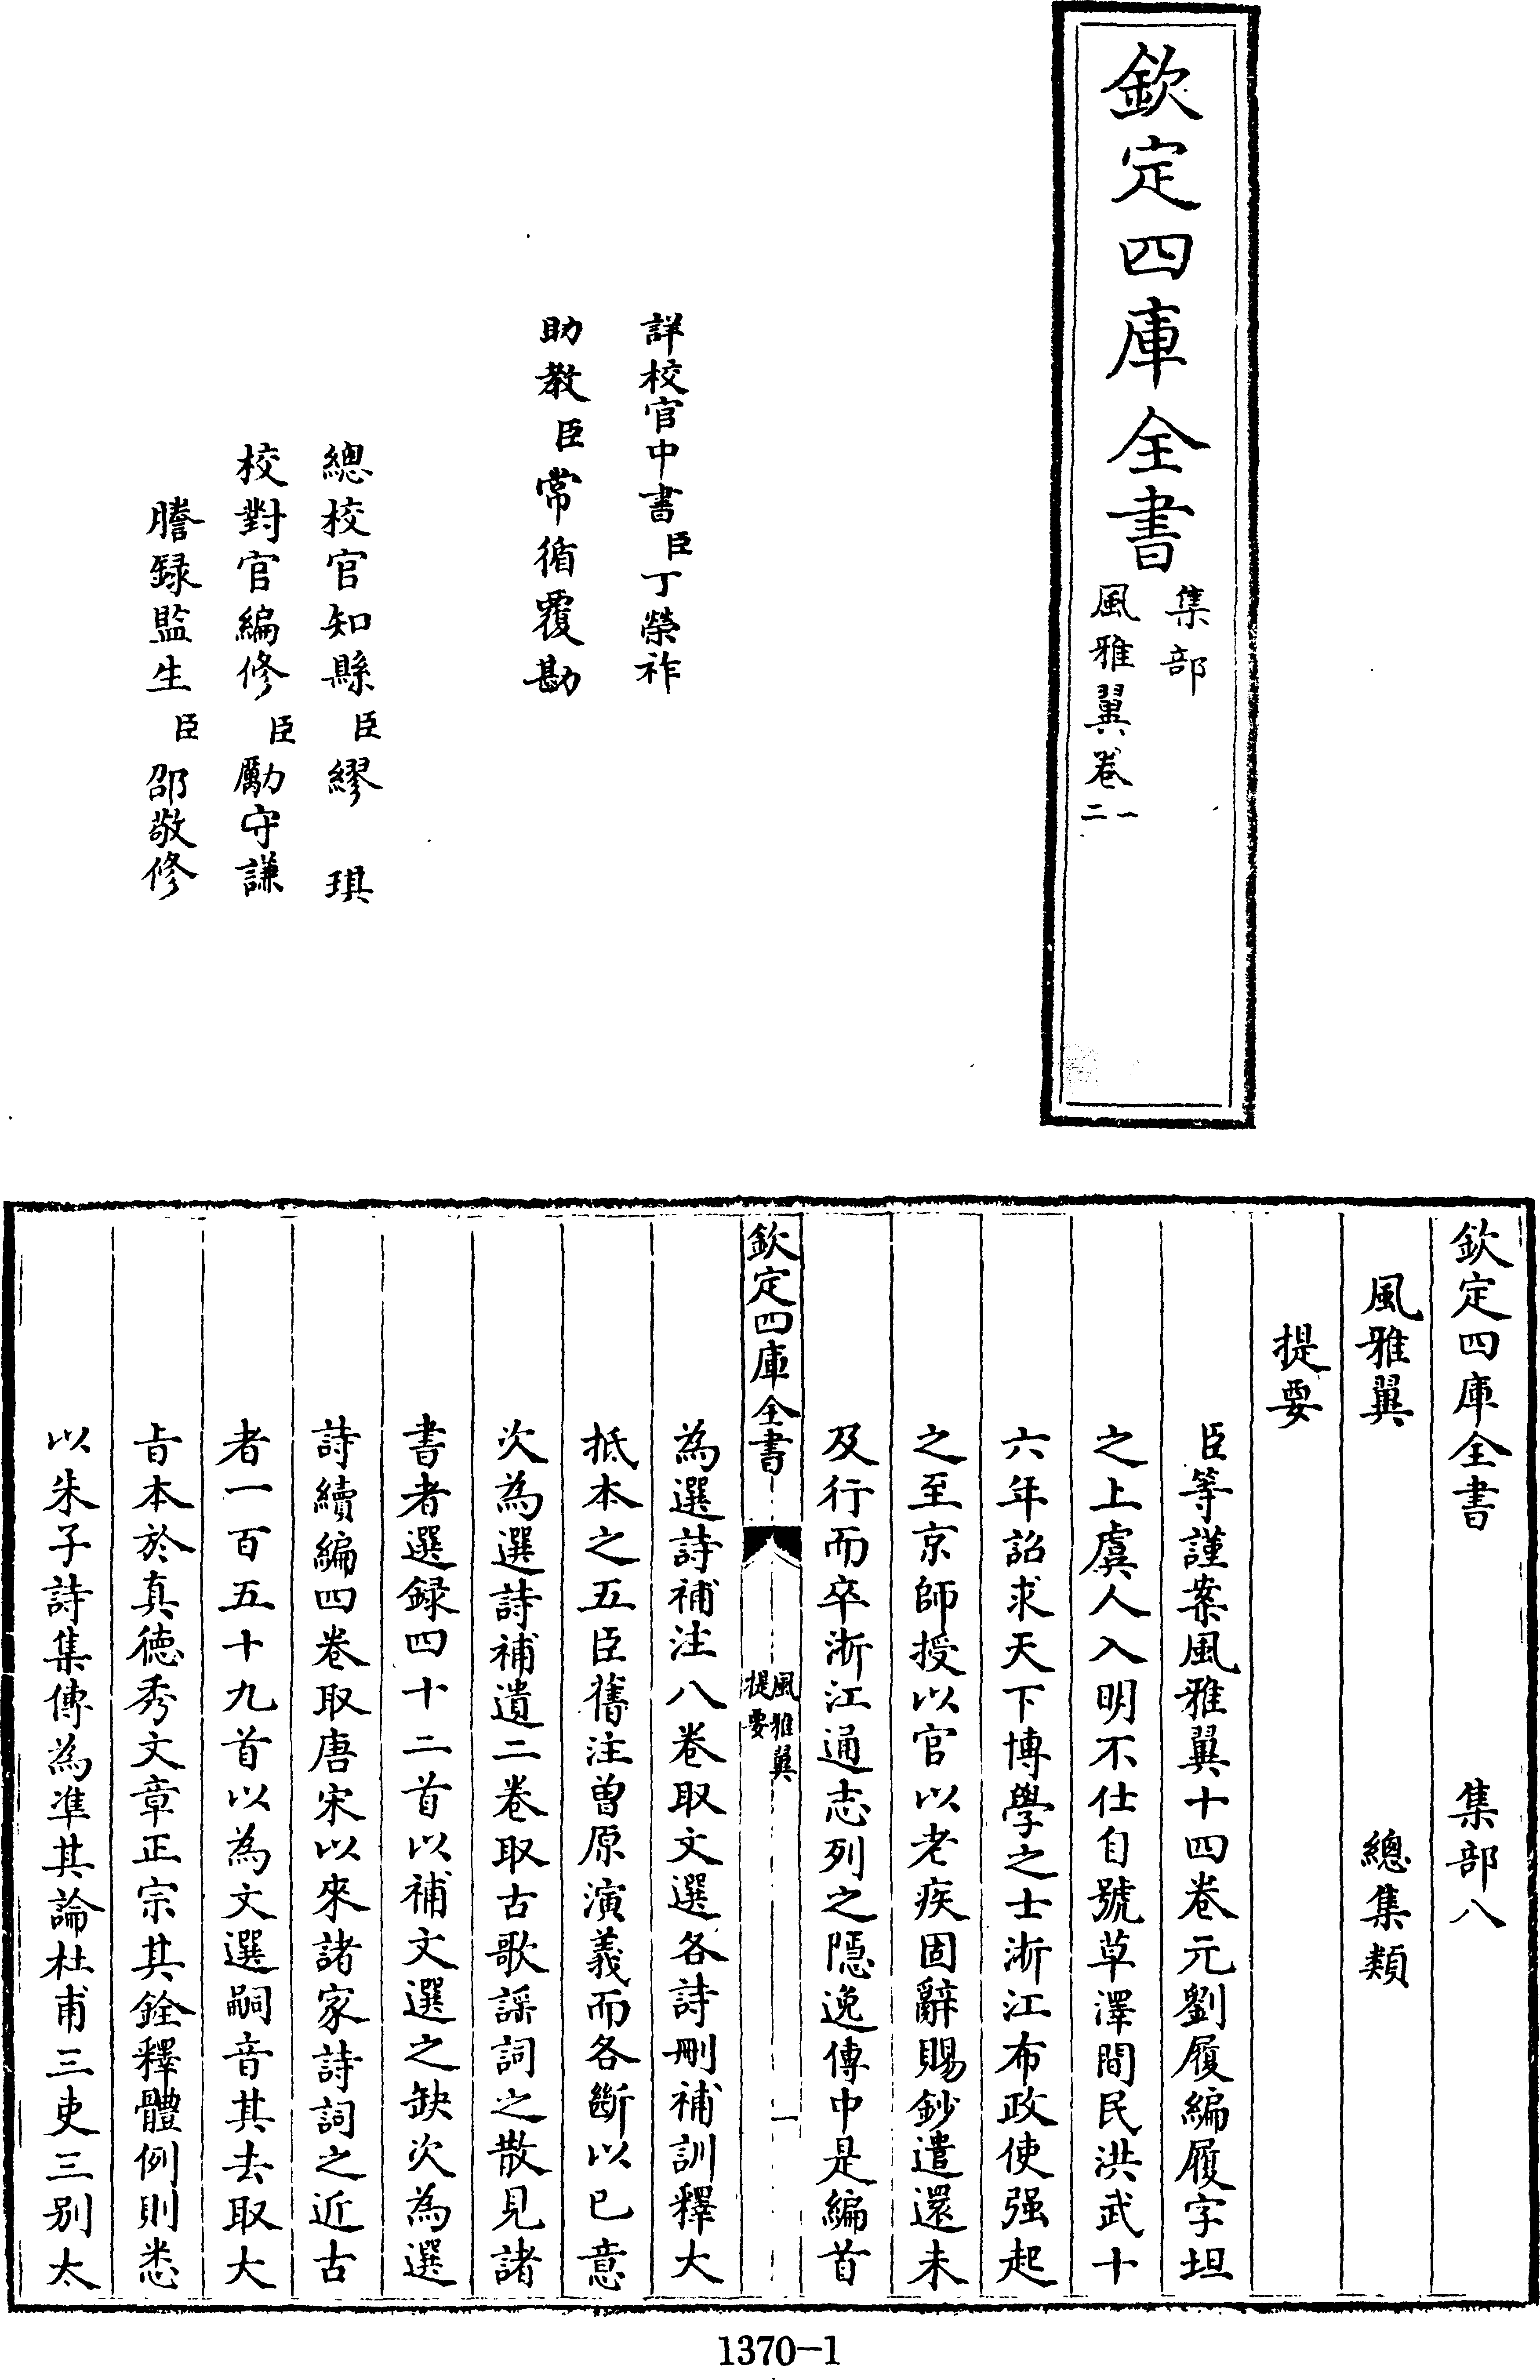 欽定四庫全書
集部
風雅翼卷一二
詳校官中書臣丁榮祚
助教臣常循覆勘
總校官知縣臣繆琪
校對官編修臣勵守謙
謄録監生臣邵敬修
欽定四庫全書 集部八
風雅翼 總集類
提要
臣等謹案風雅翼十四卷元劉履編履字坦
之上虞人入明不仕自號草澤閒民洪武十
六年詔求天下博學之士浙江布政使强起
之至京師授以官以老疾固辭賜鈔遣還未
及行而卒浙江通志列之隱逸傳中是編首
欽定四庫全書
風雅翼
提要
一
為選詩補注八卷取文選各詩刪補訓釋大
抵本之五臣舊注曽原演義而各斷以已意
次為選詩補遺二卷取古歌謡詞之散見諸
書者選録四十二首以補文選之缺次為選
詩續編四卷取唐宋以來諸家詩詞之近古
者一百五十九首以為文選嗣音其去取大
旨本於真徳秀文章正宗其銓釋體例則悉
以朱子詩集傳為準其論杜甫三吏三别太
1370-1